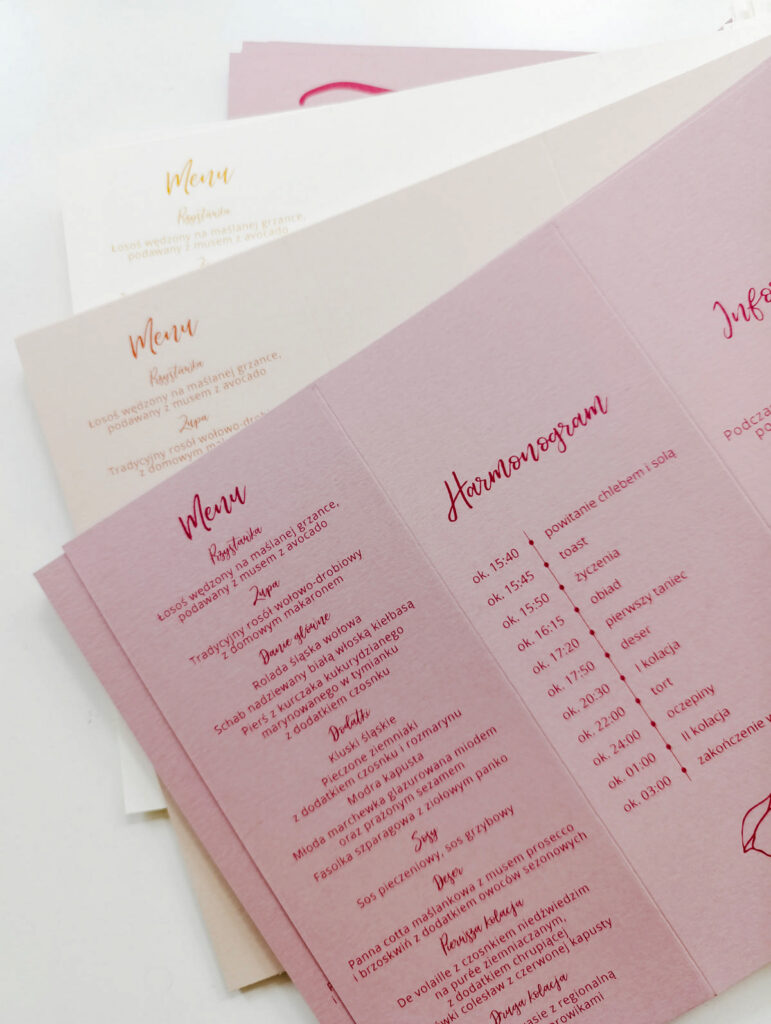 Menu
Przystawka
Łosoś wędzony na maślanej grzance,
podawany z musem z avocado
Menu
Przystawka
Łosoś wędzony na maślanej grzance,
podawany z musem z avocado
Zupa
Tradycyjny rosół wołowo-drobiowy
z domowym
Menu
Przystawka
Łosoś wędzony na maślanej grzance,
podawany z musem z avocado
Zupa
Tradycyjny rosół wołowo-drobiowy
z domowym makaronem
Danie główne
Rolada śląska wołowa
Schab nadziewany białą włoską kiełbasą
Pierś z kurczaka kukurydzianego
marynowanego w tymianku
z dodatkiem czosnku
Dodatki
Kluski śląskie
Pieczone ziemniaki
z dodatkiem czosnku i rozmarynu
Modra kapusta
Młoda marchewka glazurowana miodem
oraz prażonym sezamem
Fasolka szparagowa z ziołowym panko
Sosy
Sos pieczeniowy, sos grzybowy
Deser
Panna cotta maślankowa z musem prosecco
i brzoskwiń z dodatkiem owoców sezonowych
Pierwsza kolacja
De volaille z czosnkiem niedźwiedzim
na purée ziemniaczanym,
z dodatkiem chrupiącej
colesław z czerwonej kapusty
Druga kolacja
z regionalną
Harmonogram
ok. 15:40 powitanie chlebem i solą
ok. 15:45 toast
ok. 15:50 życzenia
ok. 16:15 obiad
ok. 17:20 pierwszy taniec
ok. 17:50 deser
ok. 20:30 I kolacja
ok. 22:00 tort
ok. 24:00 oczepiny
ok. 01:00 II kolacja
ok. 03:00 zakończenie
Info
Podcza
po